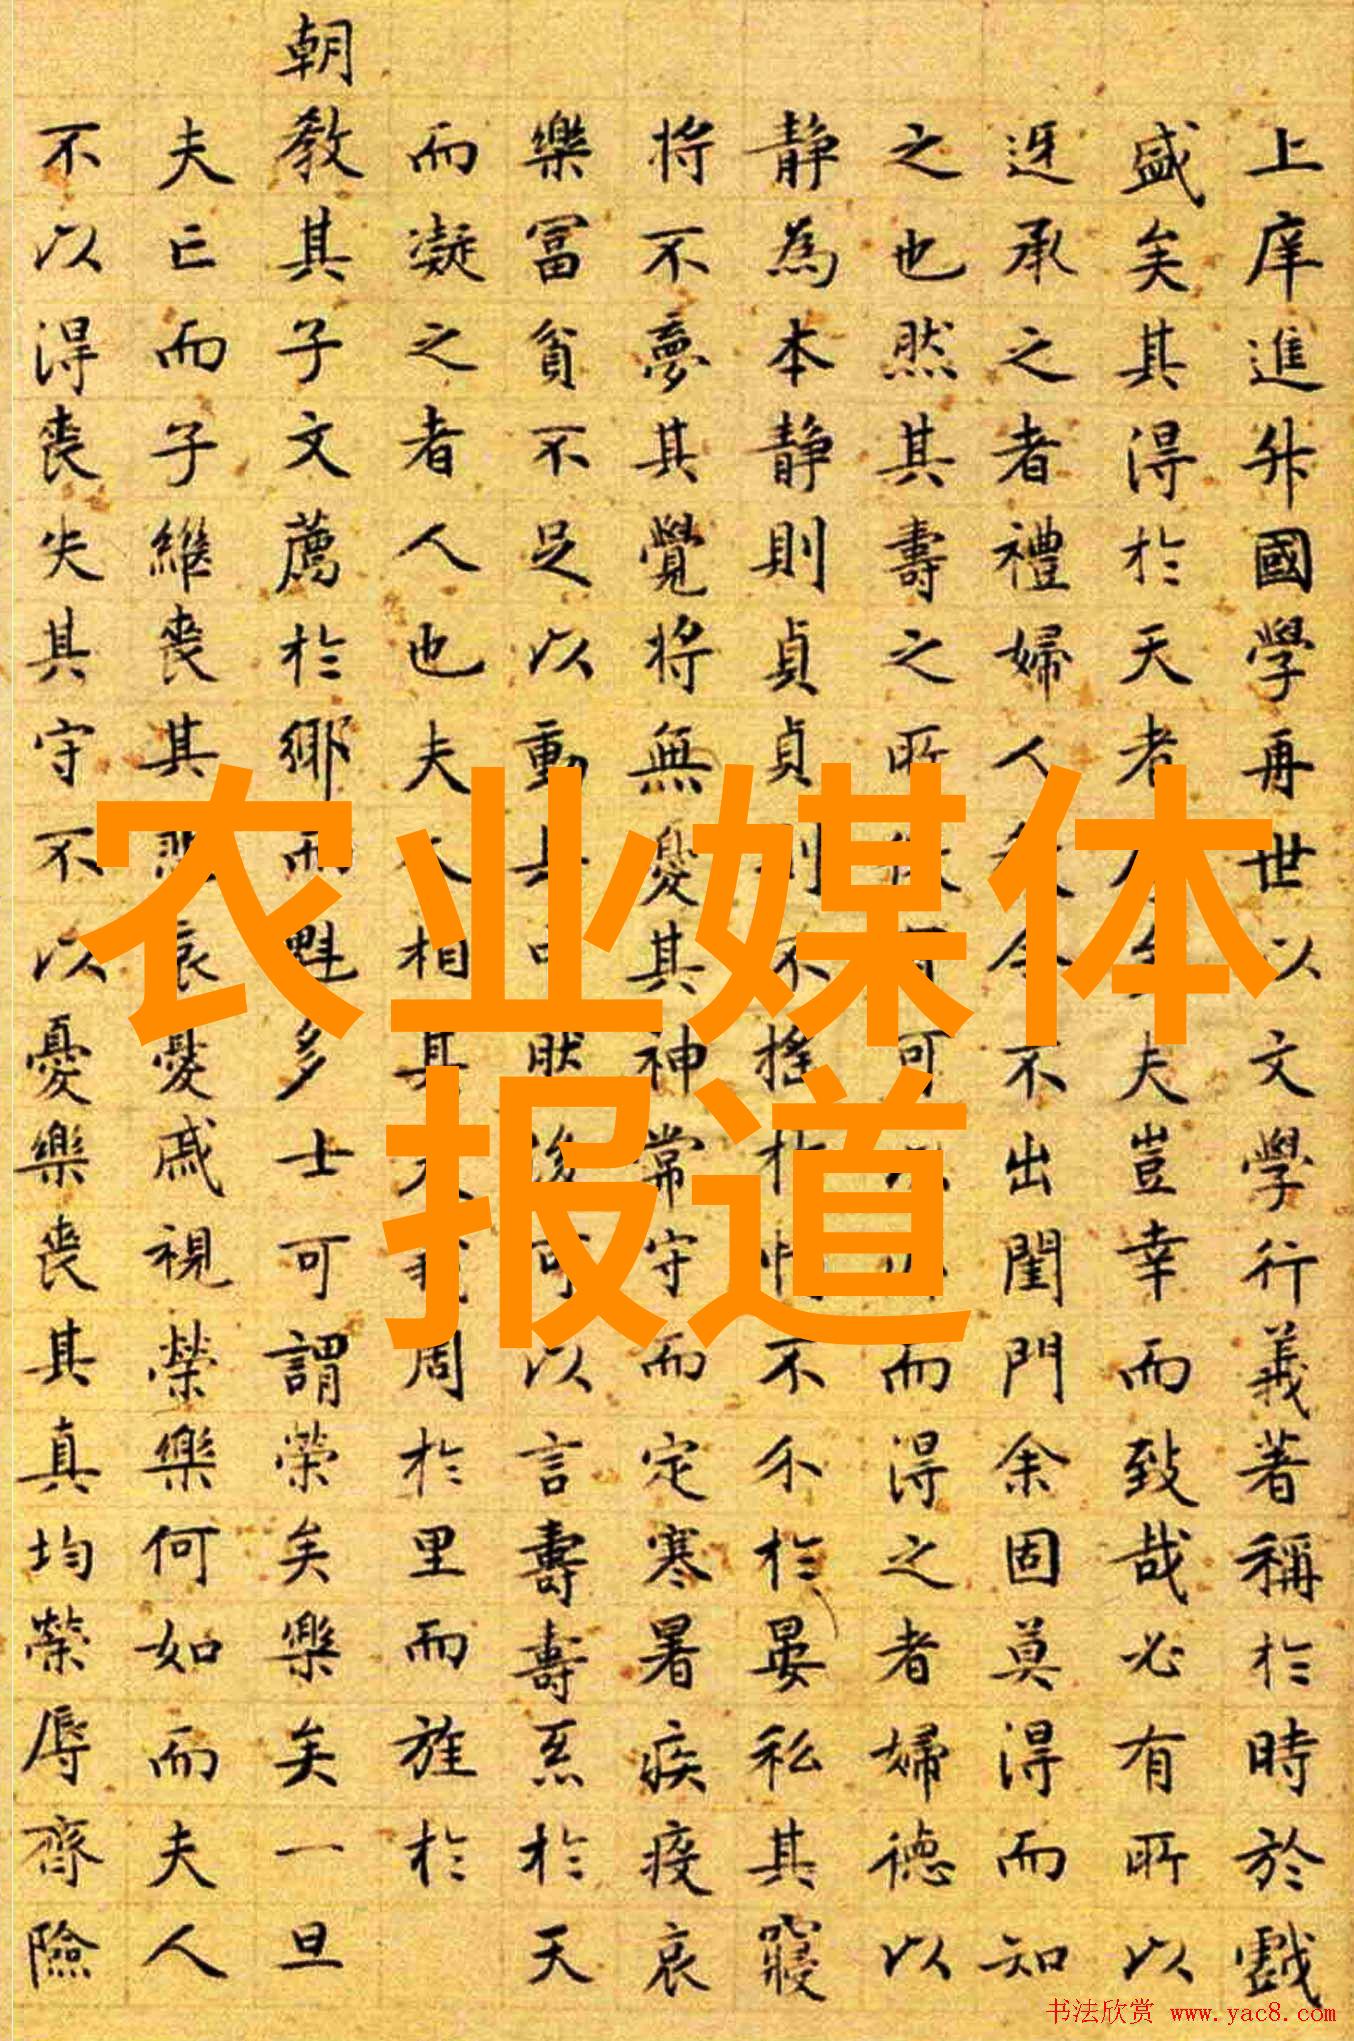 上庠進升國學再世以文學行義著稱於時於戲
盛矣其得於天者夫豈幸而致哉必有所以
迓承之者禮婦人令不出閨門余固莫得而知
之也然其壽之所何可而得之者婦德以
靜為本靜則貞貞則不搖不尒於晏私其寢
將不夢其覺將無憂其神常守而定寒暑疾疫哀
樂冨貧不足以動其中然後可以言壽壽系於天
而凝之者人也夫相其周於里而旌於
朝教其子文薦於鄉而魁多士可謂榮矣樂矣一旦
夫亡而子繼喪其悲哀憂戚視榮樂何如而夫人
不以得喪失其守不以憂樂喪其真均榮辱齊險
农业媒体
报道
书法欣赏 www.yac8.com